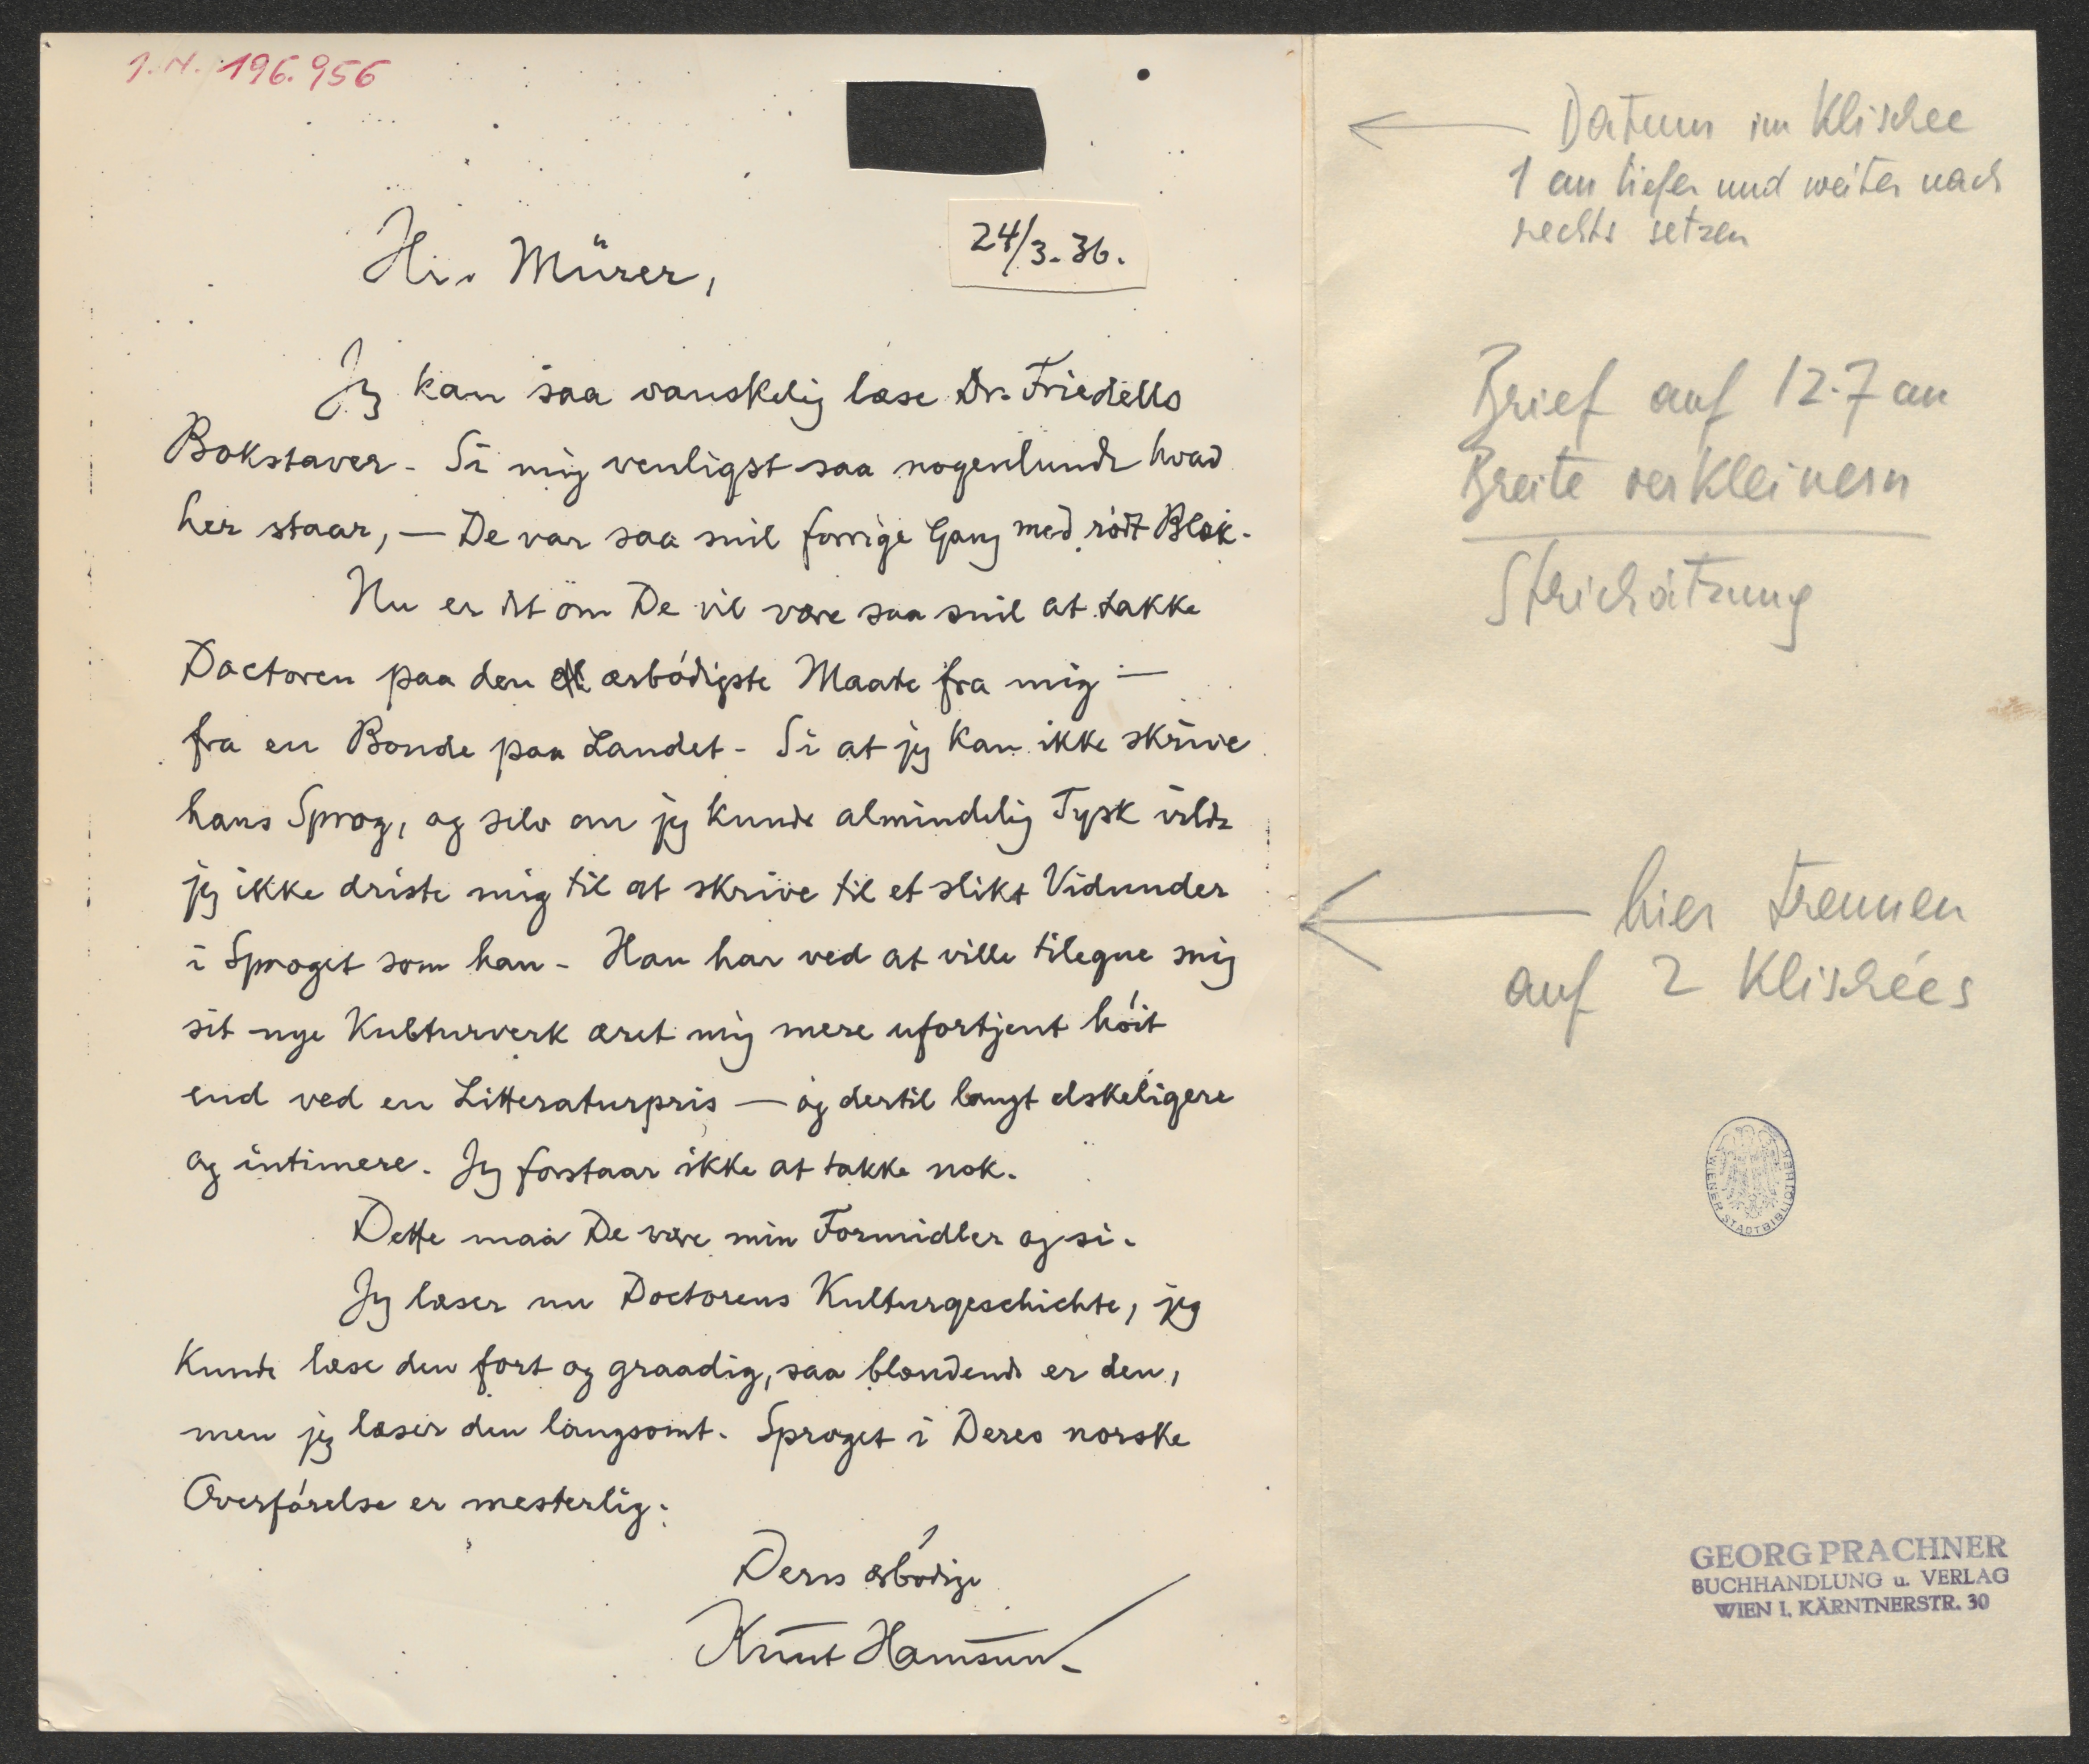 J.N. 196.956
24/3.36.
Hr. Mürer,
Jeg kan saa vanskelig læse Dr. Friedells
Bokstaver. Si mig venligst saa nogenlunde hvad
her staar, — De var saa snil forrige Gang med rødt Blæk.
Nu er det om De vil være saa snil at takke
Doctoren paa den ærbødigste Maate fra mig —
fra en Bonde paa Landet. Si at jeg kan ikke skrive
hans Sprog, og selv om jeg kunde almindelig Tysk vilde
jeg ikke driste mig til at skrive til et slikt Vidunder
i Sproget som han. Han har ved at ville tilegne mig
sit nye Kulturverk æret mig mere ufortjent höit
end ved en Litteraturpris — og dertil langt elskeligere
og intimere. Jeg forstaar ikke at takke nok.
Dette maa De være min Formidler og si.
Jeg læser nu Doctorens Kulturgeschichte, jeg
kunde læse den fort og graadig, saa blændende er den,
men jeg læser den langsomt. Sproget i Deres norske
Overførelse er mesterlig.
Deres ærbødige
Knut Hamsun.
Datum im Klischee
1 cm tiefer und weiter nach
rechts setzen
Brief auf 12.7 cm
Breite verkleinern
Strichätzung
hier trennen
auf 2 Klischées
WIENER STADTBIBLIOTHEK
GEORG PRACHNER
BUCHHANDLUNG u. VERLAG
WIEN I, KÄRNTNERSTR. 30